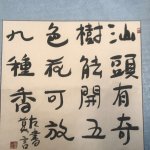 汕頭有奇
樹能開五
色花可放
九種香